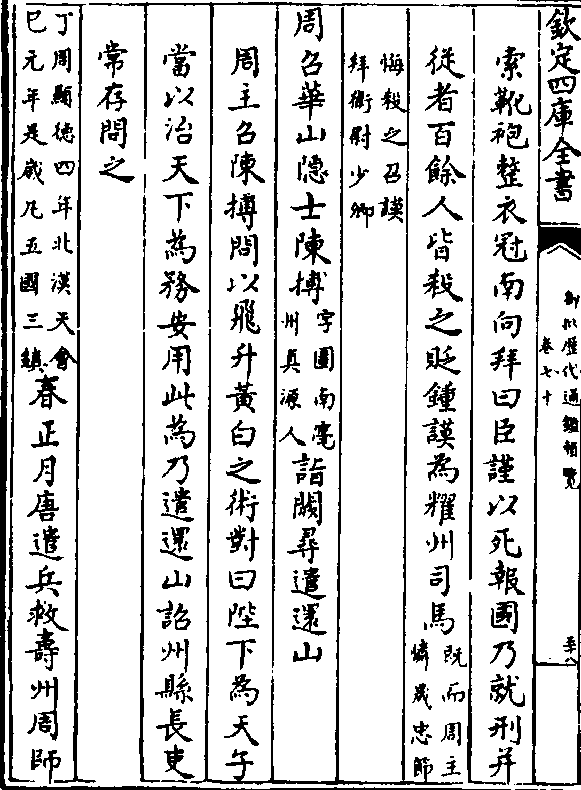 欽定四庫全書
御批歷代通鑑輯覽
卷七十
索靴袍整衣冠南向拜曰臣謹以死報國乃就刑并
從者百餘人皆殺之貶鍾謨為耀州司馬既而周主憐晟忠節
悔殺之召謨拜衛尉少卿
周召華山隱士陳摶字圖南亳州真源人詣闕尋遣還山
周主召陳摶問以飛升黄白之術對曰陛下為天子
當以治天下為務安用此為乃遣還山詔州縣長吏
常存問之
丁巳周顯德四年北漢天會元年是歲凡五國三鎮春正月唐遣兵救壽州周師